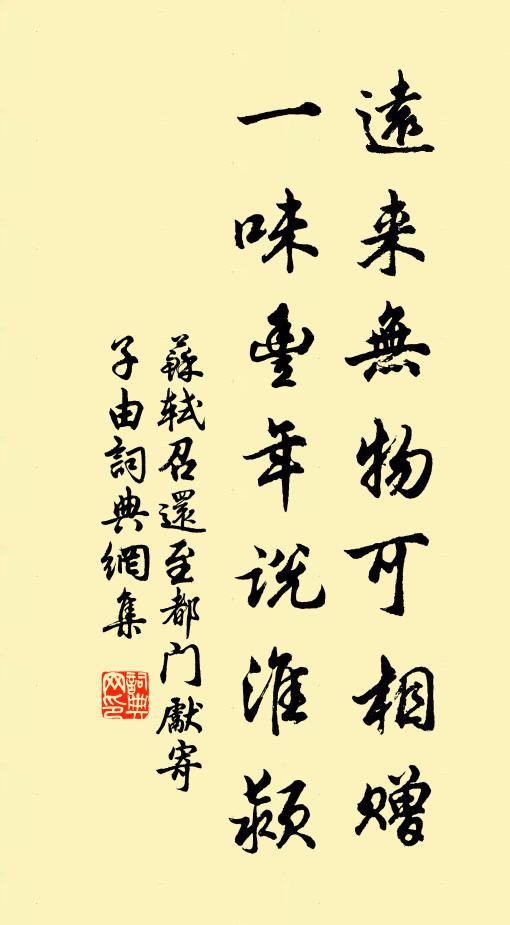 遠来無物可相贈
一味豊年説淮潁
蘇軾召還至都門獻寄
子由詞典網集
詞典网印